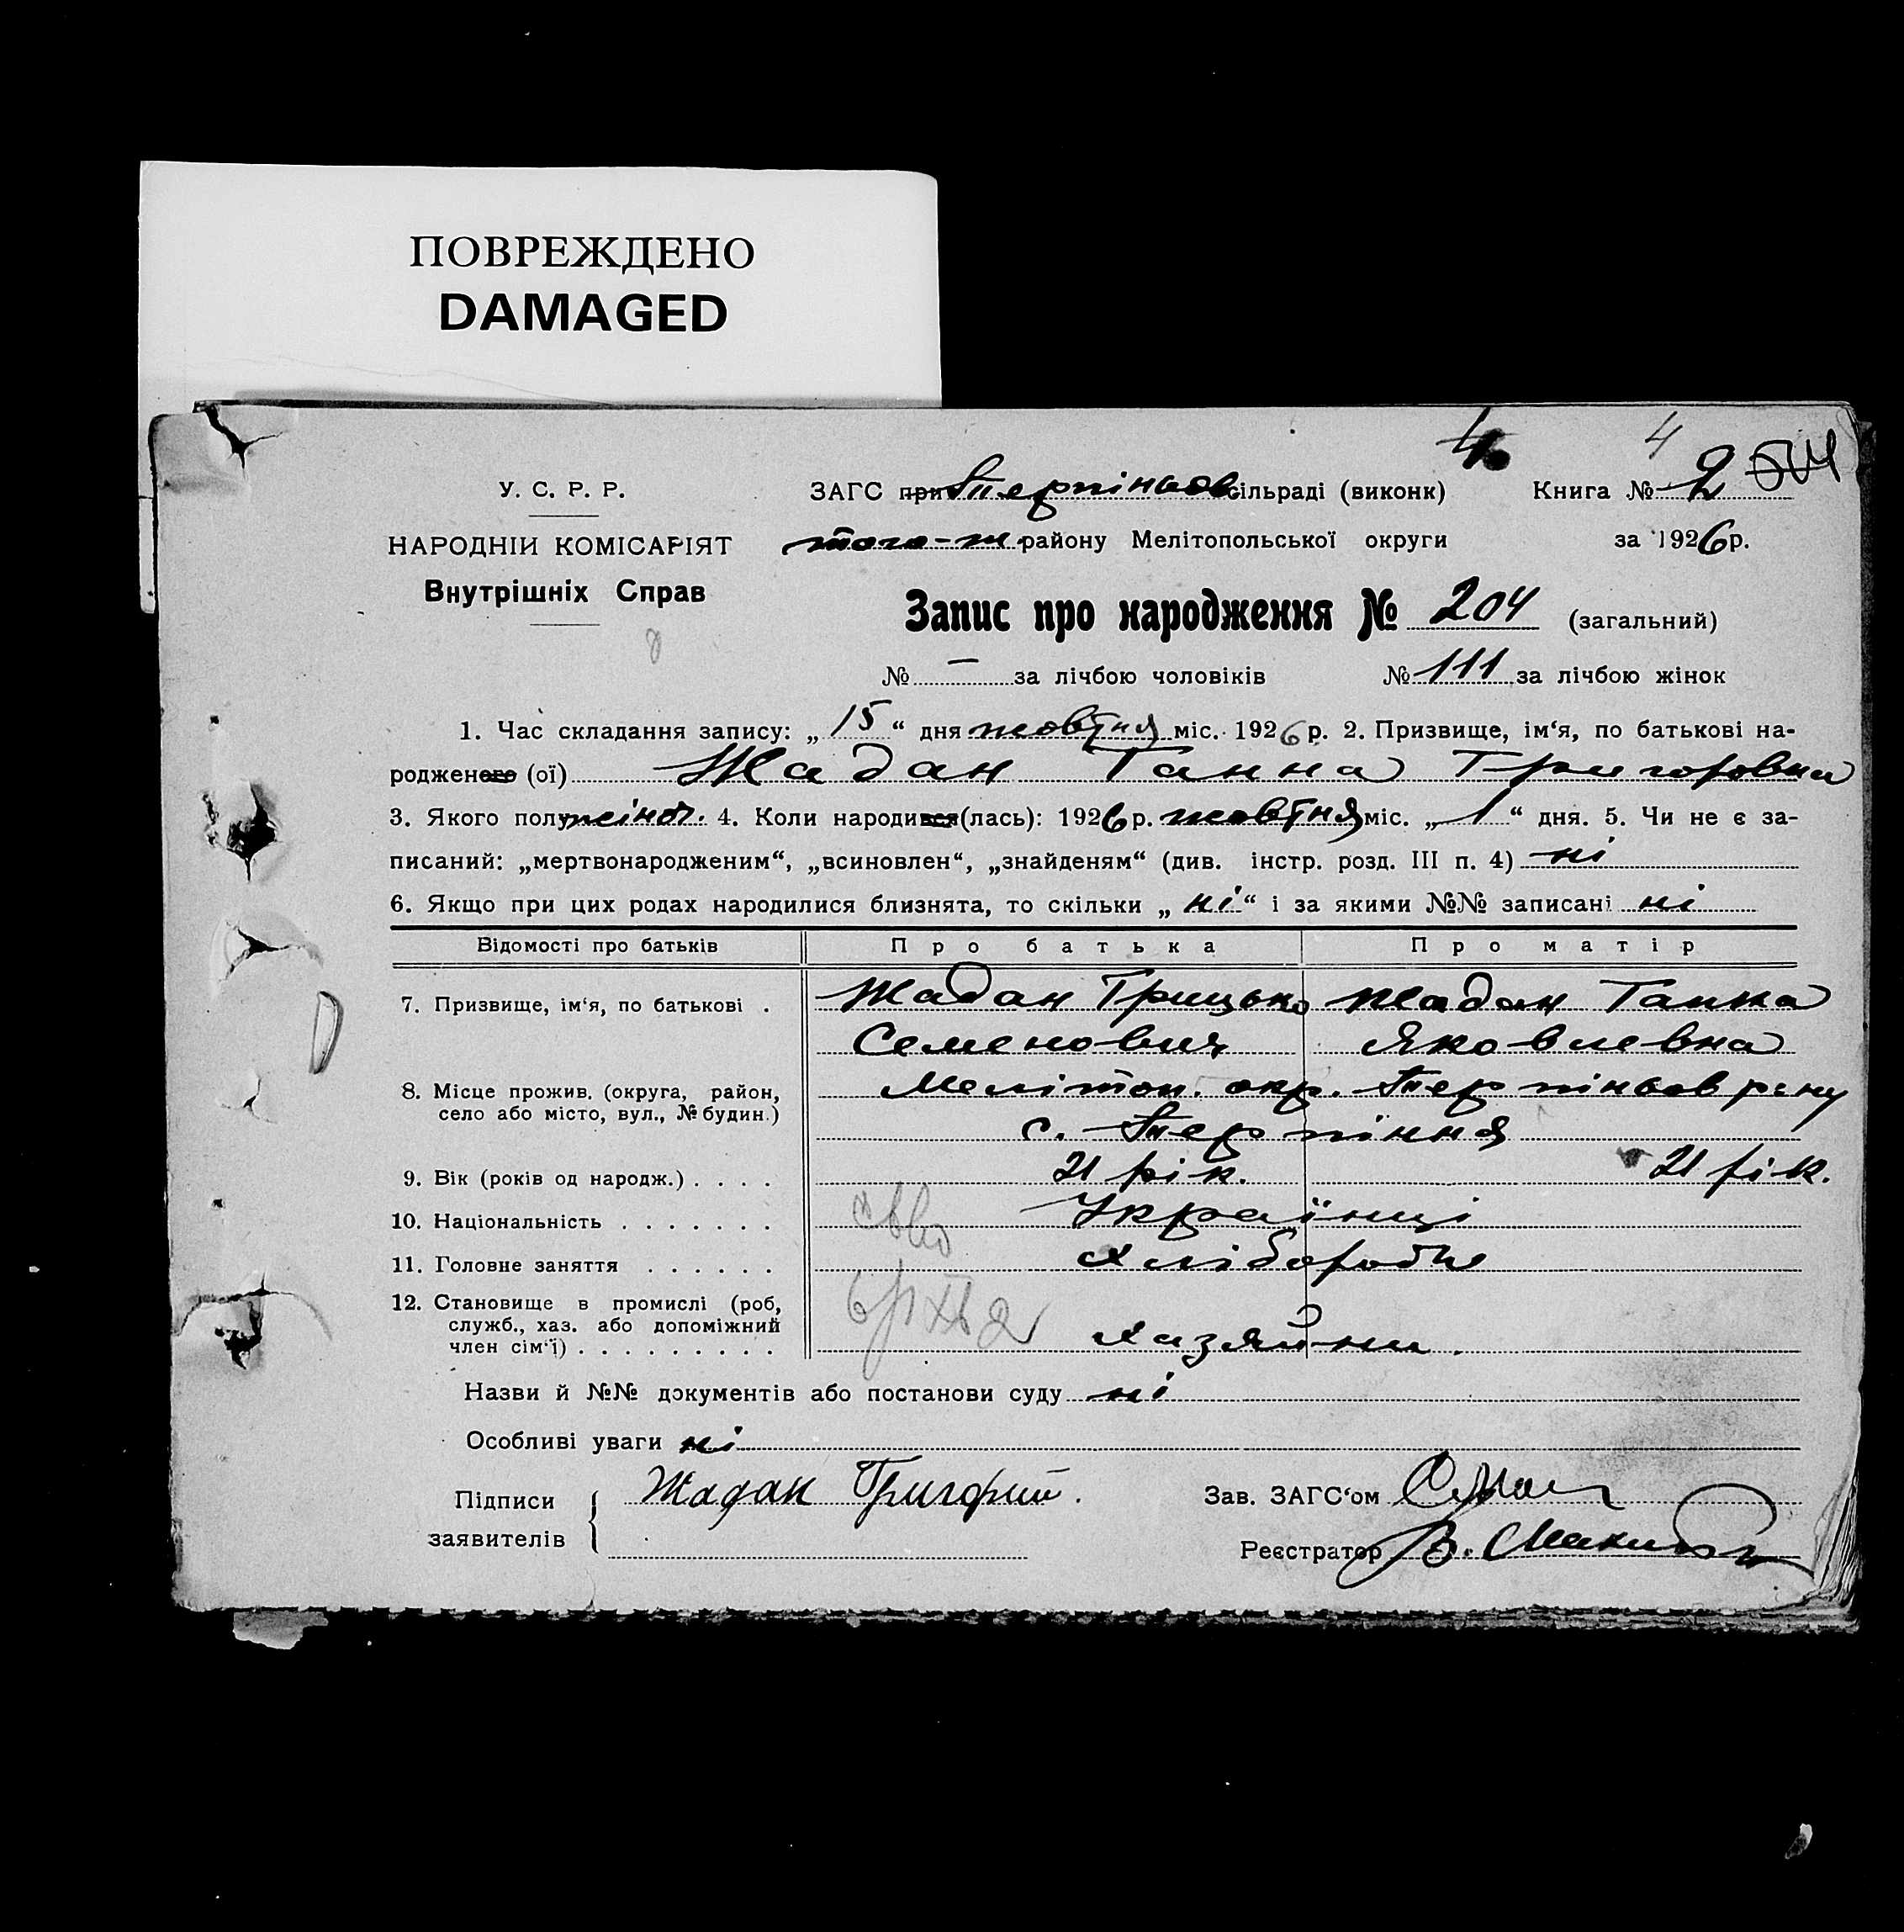 ПОВРЕЖДЕНО
DAMAGED
4 4
У. С. Р. Р. ЗАГС при Терпіньов сільраді (виконк) Книга № 2 504
НАРОДНІЙ КОМІСАРІЯТ того-ж району Мелітопольської округи за 1926 р.
Внутрішніх Справ
Запис про народження № 204 (загальний)
№ — за лічбою чоловіків № 111 за лічбою жінок
1. Час складання запису: „15“ дня жовтня міс. 1926 р. 2. Призвище, ім‘я, по батькові на-
родженого (ої) Жадан Ганна Григоровна
3. Якого полу жіноч. 4. Коли народився(лась): 1926 р. жовтня міс. „1“ дня. 5. Чи не є за-
писаний: „мертвонародженим“, „всиновлен“, „знайденям“ (див. інстр. розд. III п. 4) ні
6. Якщо при цих родах народилися близнята, то скільки „ні“ і за якими №№ записані ні
Відомості про батьків Про батька Про матір
7. Призвище, ім‘я, по батькові . Жадан Грицько Жадан Ганна
Семенович Яковлевна
8. Місце прожив. (округа, район, Мелітоп. окр. Терпіньов р-ну
село або місто, вул., № будин.)
с. Терпіння
9. Вік (років од народж.) . . . . 21 рік. 21 рік.
10. Національність . . . . . . . Українці
11. Головне заняття . . . . . . Хлібороби
12. Становище в промислі (роб,
служб., хаз. або допоміжний
член сім‘ї) . . . . . . . . . Хазяйни.
Назви й №№ документів або постанови суду ні
Особливі уваги ні
Підписи Жадан Григорий. Зав. ЗАГС‘ом
заявителів
Реєстратор В.